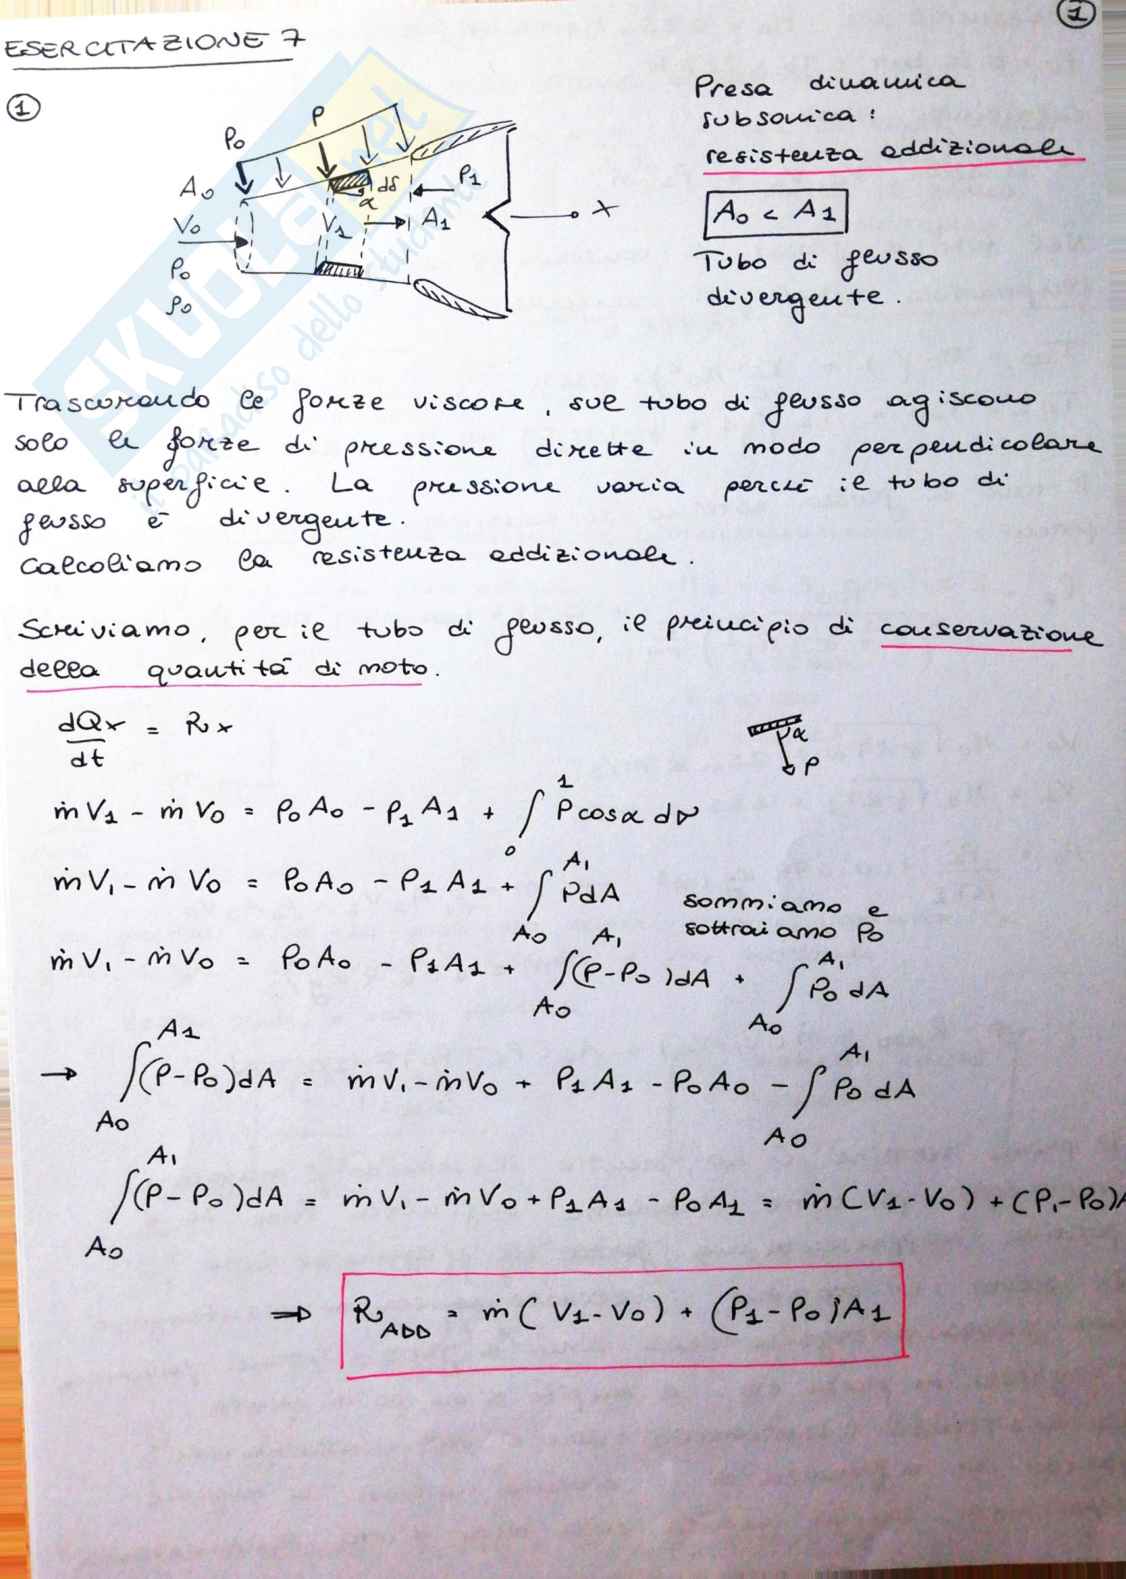 1
ESERCITAZIONE 7
1
Presa dinamica
subsonica:
resistenza addizionale
P0 P
A0 dS P1
V0 V1 α A1 x
P0
ρ0
A0 < A1
Tubo di flusso
divergente.
SKUOLA.net
il paradiso dello studente
Trascurando le forze viscose, sul tubo di flusso agiscono
solo le forze di pressione dirette in modo perpendicolare
alla superficie. La pressione varia perché il tubo di
flusso è divergente.
Calcoliamo la resistenza addizionale.
Scriviamo, per il tubo di flusso, il principio di conservazione
della quantità di moto.
dQx/dt = Rx
α
P
ṁV1 - ṁV0 = P0A0 - P1A1 + ∫_0^1 P cosα dσ
ṁV1 - ṁV0 = P0A0 - P1A1 + ∫_A0^A1 PdA sommiamo e
sottraiamo P0
ṁV1 - ṁV0 = P0A0 - P1A1 + ∫_A0^A1 (P-P0)dA + ∫_A0^A1 P0 dA
→ ∫_A0^A1 (P-P0)dA = ṁV1 - ṁV0 + P1A1 - P0A0 - ∫_A0^A1 P0 dA
∫_A0^A1 (P-P0)dA = ṁV1 - ṁV0 + P1A1 - P0A1 = ṁ(V1-V0) + (P1-P0)A
⇒ R_ADD = ṁ(V1-V0) + (P1-P0)A1